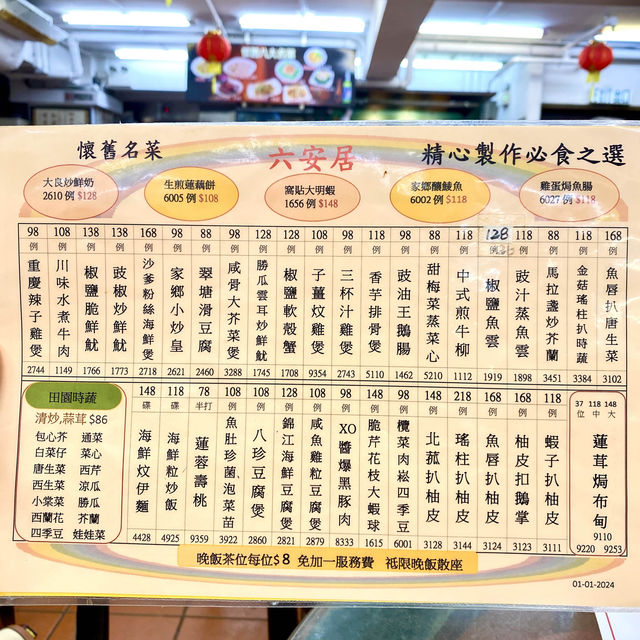 懷舊名菜 六安居 精心製作必食之選
大良炒鮮奶
2610 例 $128
生煎蓮藕餅
6005 例 $108
窩貼大明蝦
1656 例 $148
家鄉釀鯪魚
6002 例 $118
雞蛋焗魚腸
6027 例 $118
98 例 重慶辣子雞煲 2744
108 例 川味水煮牛肉 1149
138 例 椒鹽脆鮮魷 1766
138 例 豉椒炒鮮魷 1773
168 例 沙爹粉絲海鮮煲 2718
98 例 家鄉小炒皇 2621
88 例 翠塘滑豆腐 2460
98 例 咸骨大芥菜煲 3288
128 例 勝瓜雲耳炒鮮魷 1145
128 例 椒鹽軟殼蟹 1708
98 例 子薑炆雞煲 9354
98 例 三杯汁雞煲 2743
118 例 香芋排骨煲 5110
98 例 豉油王鵝腸 1462
88 例 甜梅菜蒸菜心 5210
118 例 中式煎牛柳 1112
128 例 椒鹽魚雲 1919
118 例 豉汁蒸魚雲 1898
88 例 馬拉盞炒芥蘭 3451
118 例 金菇瑤柱扒時蔬 3384
168 例 魚唇扒唐生菜 3102
田園時蔬
清炒,蒜茸 $86
包心芥 通菜
白菜仔 菜心
唐生菜 西芹
西生菜 涼瓜
小棠菜 勝瓜
西蘭花 芥蘭
四季豆 娃娃菜
148 碟 海鮮炆伊麵 4428
118 碟 海鮮粒炒飯 4925
78 半打 蓮蓉壽桃 9359
108 例 魚肚珍菌泡菜苗 3922
108 例 八珍豆腐煲 2860
128 例 錦江海鮮豆腐煲 2821
108 例 咸魚雞粒豆腐煲 2879
98 例 XO醬爆黑豚肉 8333
148 例 脆芹花枝大蝦球 1615
98 例 欖菜肉崧四季豆 6001
148 例 北菰扒柚皮 3128
218 例 瑤柱扒柚皮 3144
168 例 魚唇扒柚皮 3124
168 例 柚皮扣鵝掌 3123
118 例 蝦子扒柚皮 3111
37 118 148
位 中 大
蓮茸焗布甸
9110
9220 9253
晚飯茶位每位$8 免加一服務費 祗限晚飯散座
01-01-2024